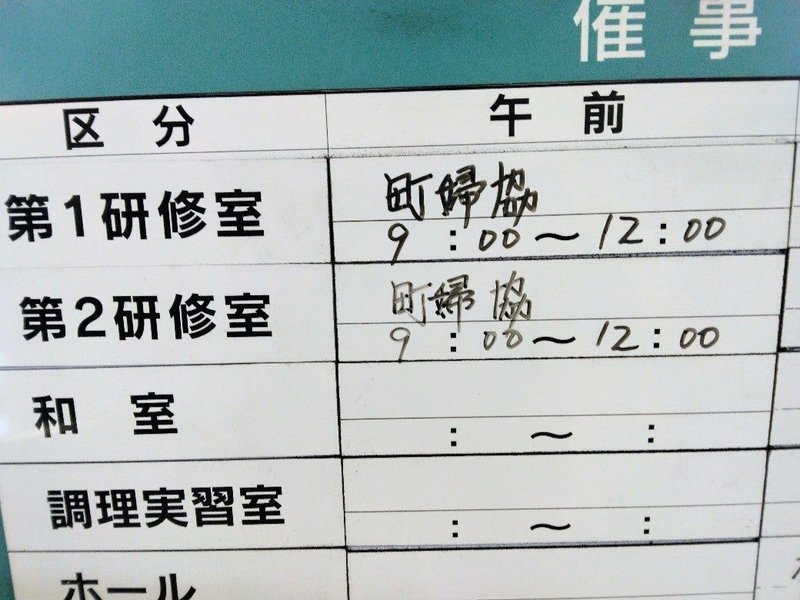 催事
区分 午前
第1研修室 町婦協
9:00～12:00
第2研修室 町婦協
9:00～12:00
和室
: ～ :
調理実習室
: ～ :
ホール